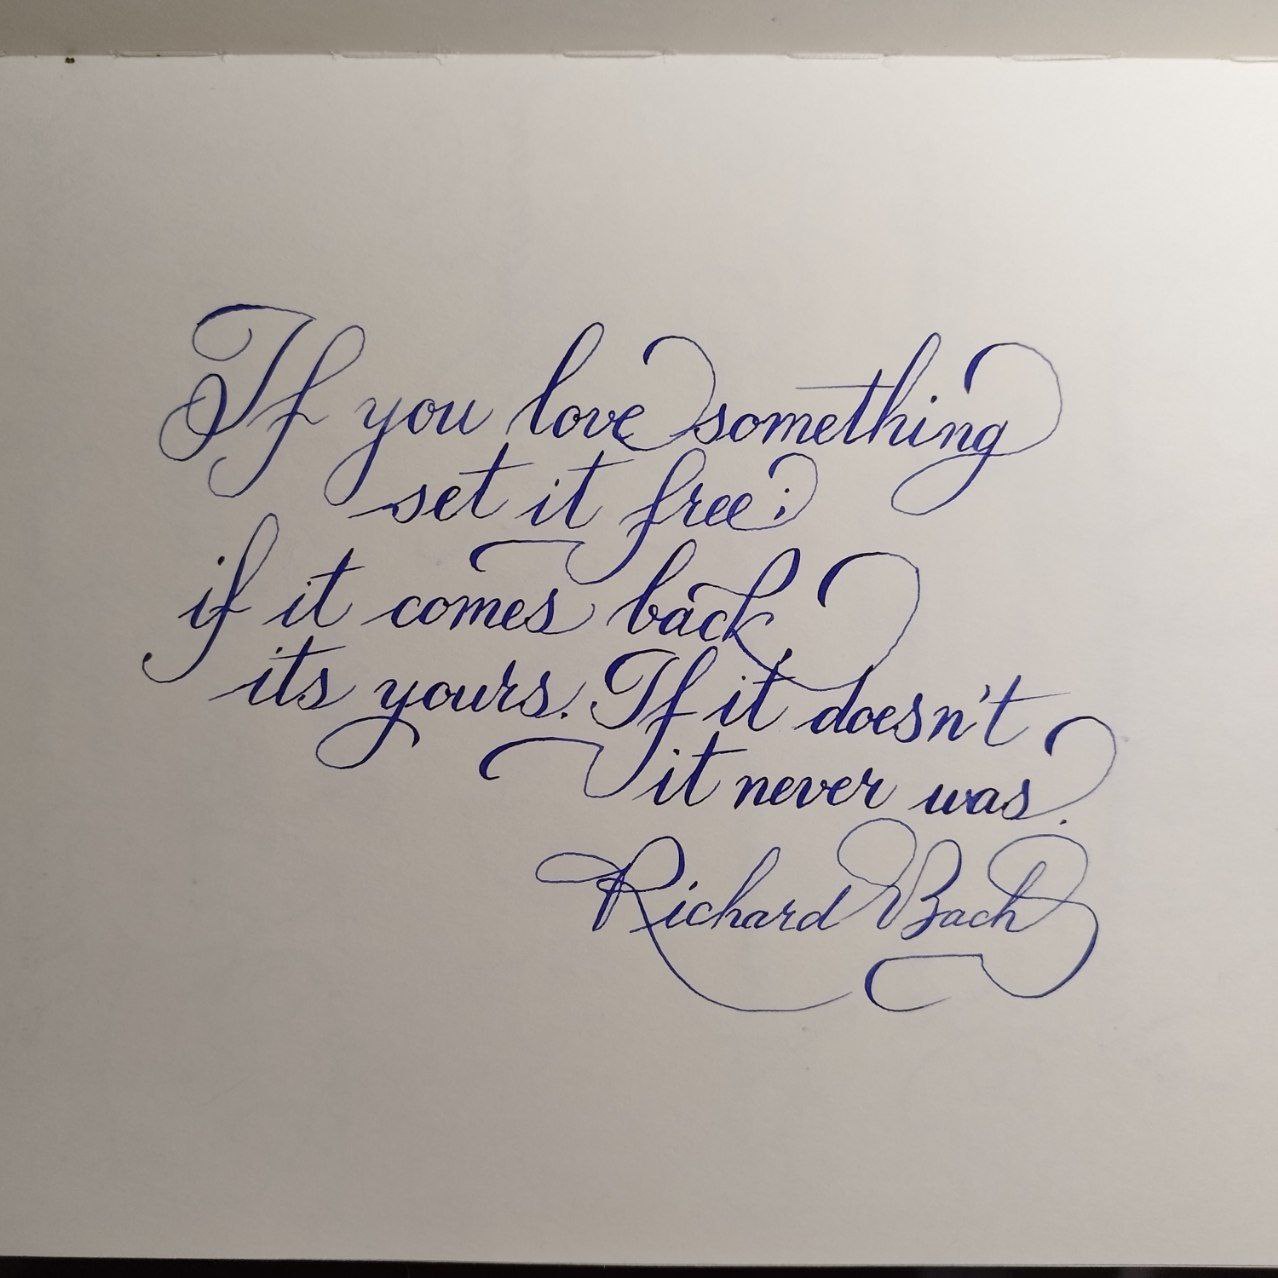 If you love something
set it free;
if it comes back
its yours. If it doesn't
it never was.
Richard Bach